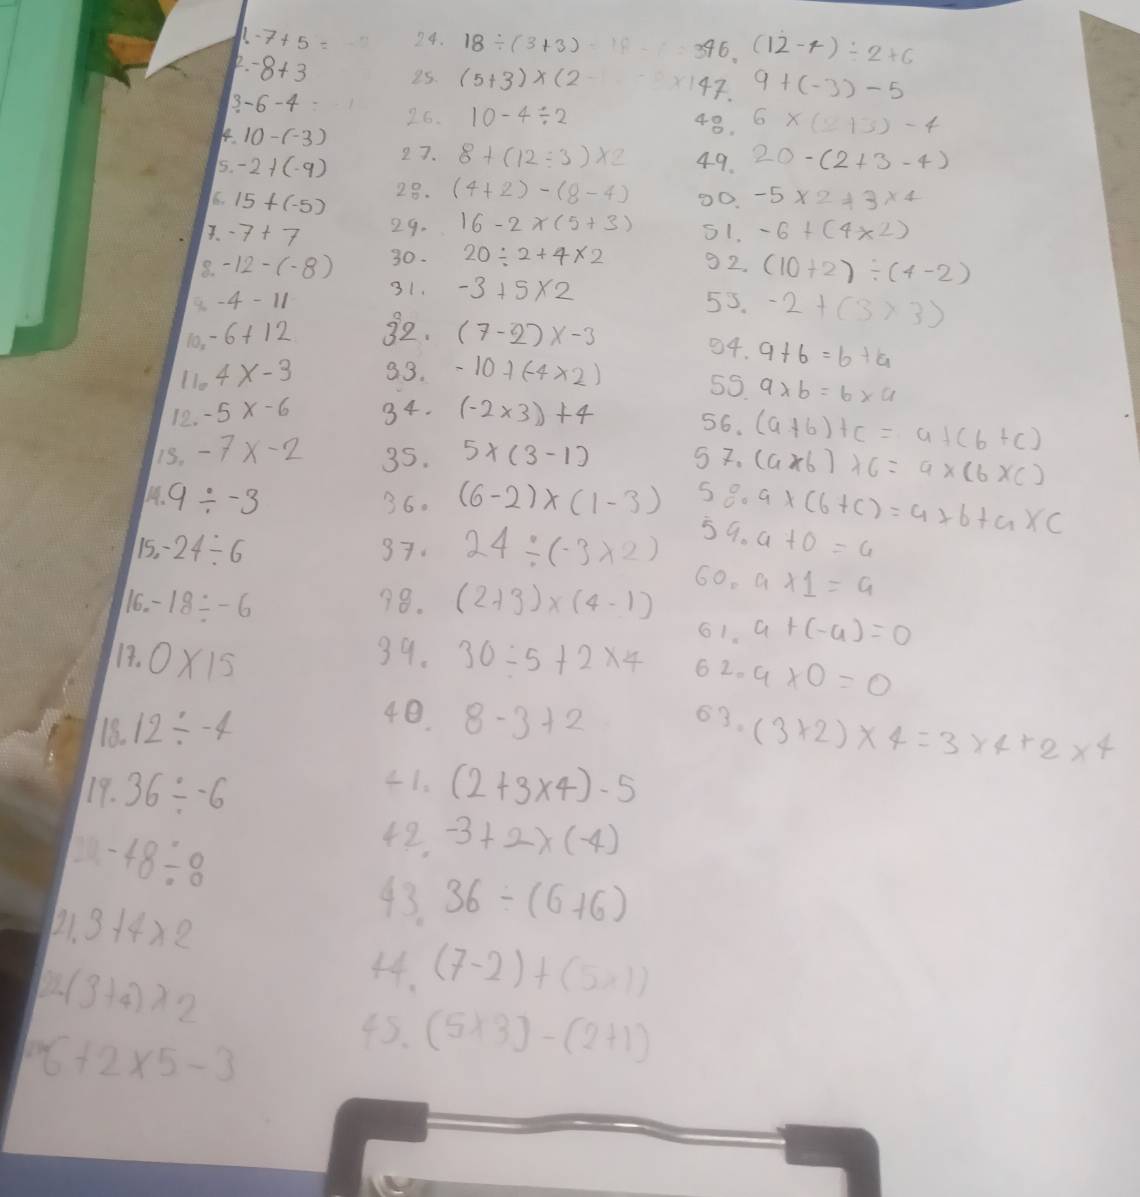 1. -7+5 =
2. -8+3
3. -6-4 =
4. 10-(-3)
5. -2+(-9)
6. 15+(-5)
7. -7+7
8. -12-(-8)
9. -4-11
10. -6+12
11. 4x-3
12. -5x-6
13. -7x-2
14. 9÷-3
15. -24÷6
16. -18÷-6
17. 0x15
18. 12÷-4
19. 36÷-6
20. -48÷8
21. 3+4x2
22. (3+4)x2
6+2x5-3
24. 18÷(3+3)
25. (5+3)x(2
26. 10-4÷2
27. 8+(12÷3)x2
28. (4+2)-(8-4)
29. 16-2x(5+3)
30. 20÷2+4x2
31. -3+5x2
32. (7-2)x-3
33. -10+(-4x2)
34. (-2x3)+4
35. 5x(3-1)
36. (6-2)x(1-3)
37. 24÷(-3x2)
38. (2+3)x(4-1)
39. 30÷5+2x4
40. 8-3+2
41. (2+3x4)-5
42. -3+2x(-4)
43. 36÷(6+6)
44. (7-2)+(5x1)
45. (5x3)-(2+1)
46. (12-4)÷2+6
47. 9+(-3)-5
48. 6x(2+3)-4
49. 20-(2+3-4)
50. -5x2+3x4
51. -6+(4x2)
52. (10+2)÷(4-2)
53. -2+(3x3)
54. a+b=b+a
55. axb=bxa
56. (a+b)+c=a+(b+c)
57. (axb)xc=ax(bxc)
58. ax(b+c)=axb+axc
59. a+0=a
60. ax1=a
61. a+(-a)=0
62. ax0=0
63. (3+2)x4=3x4+2x4